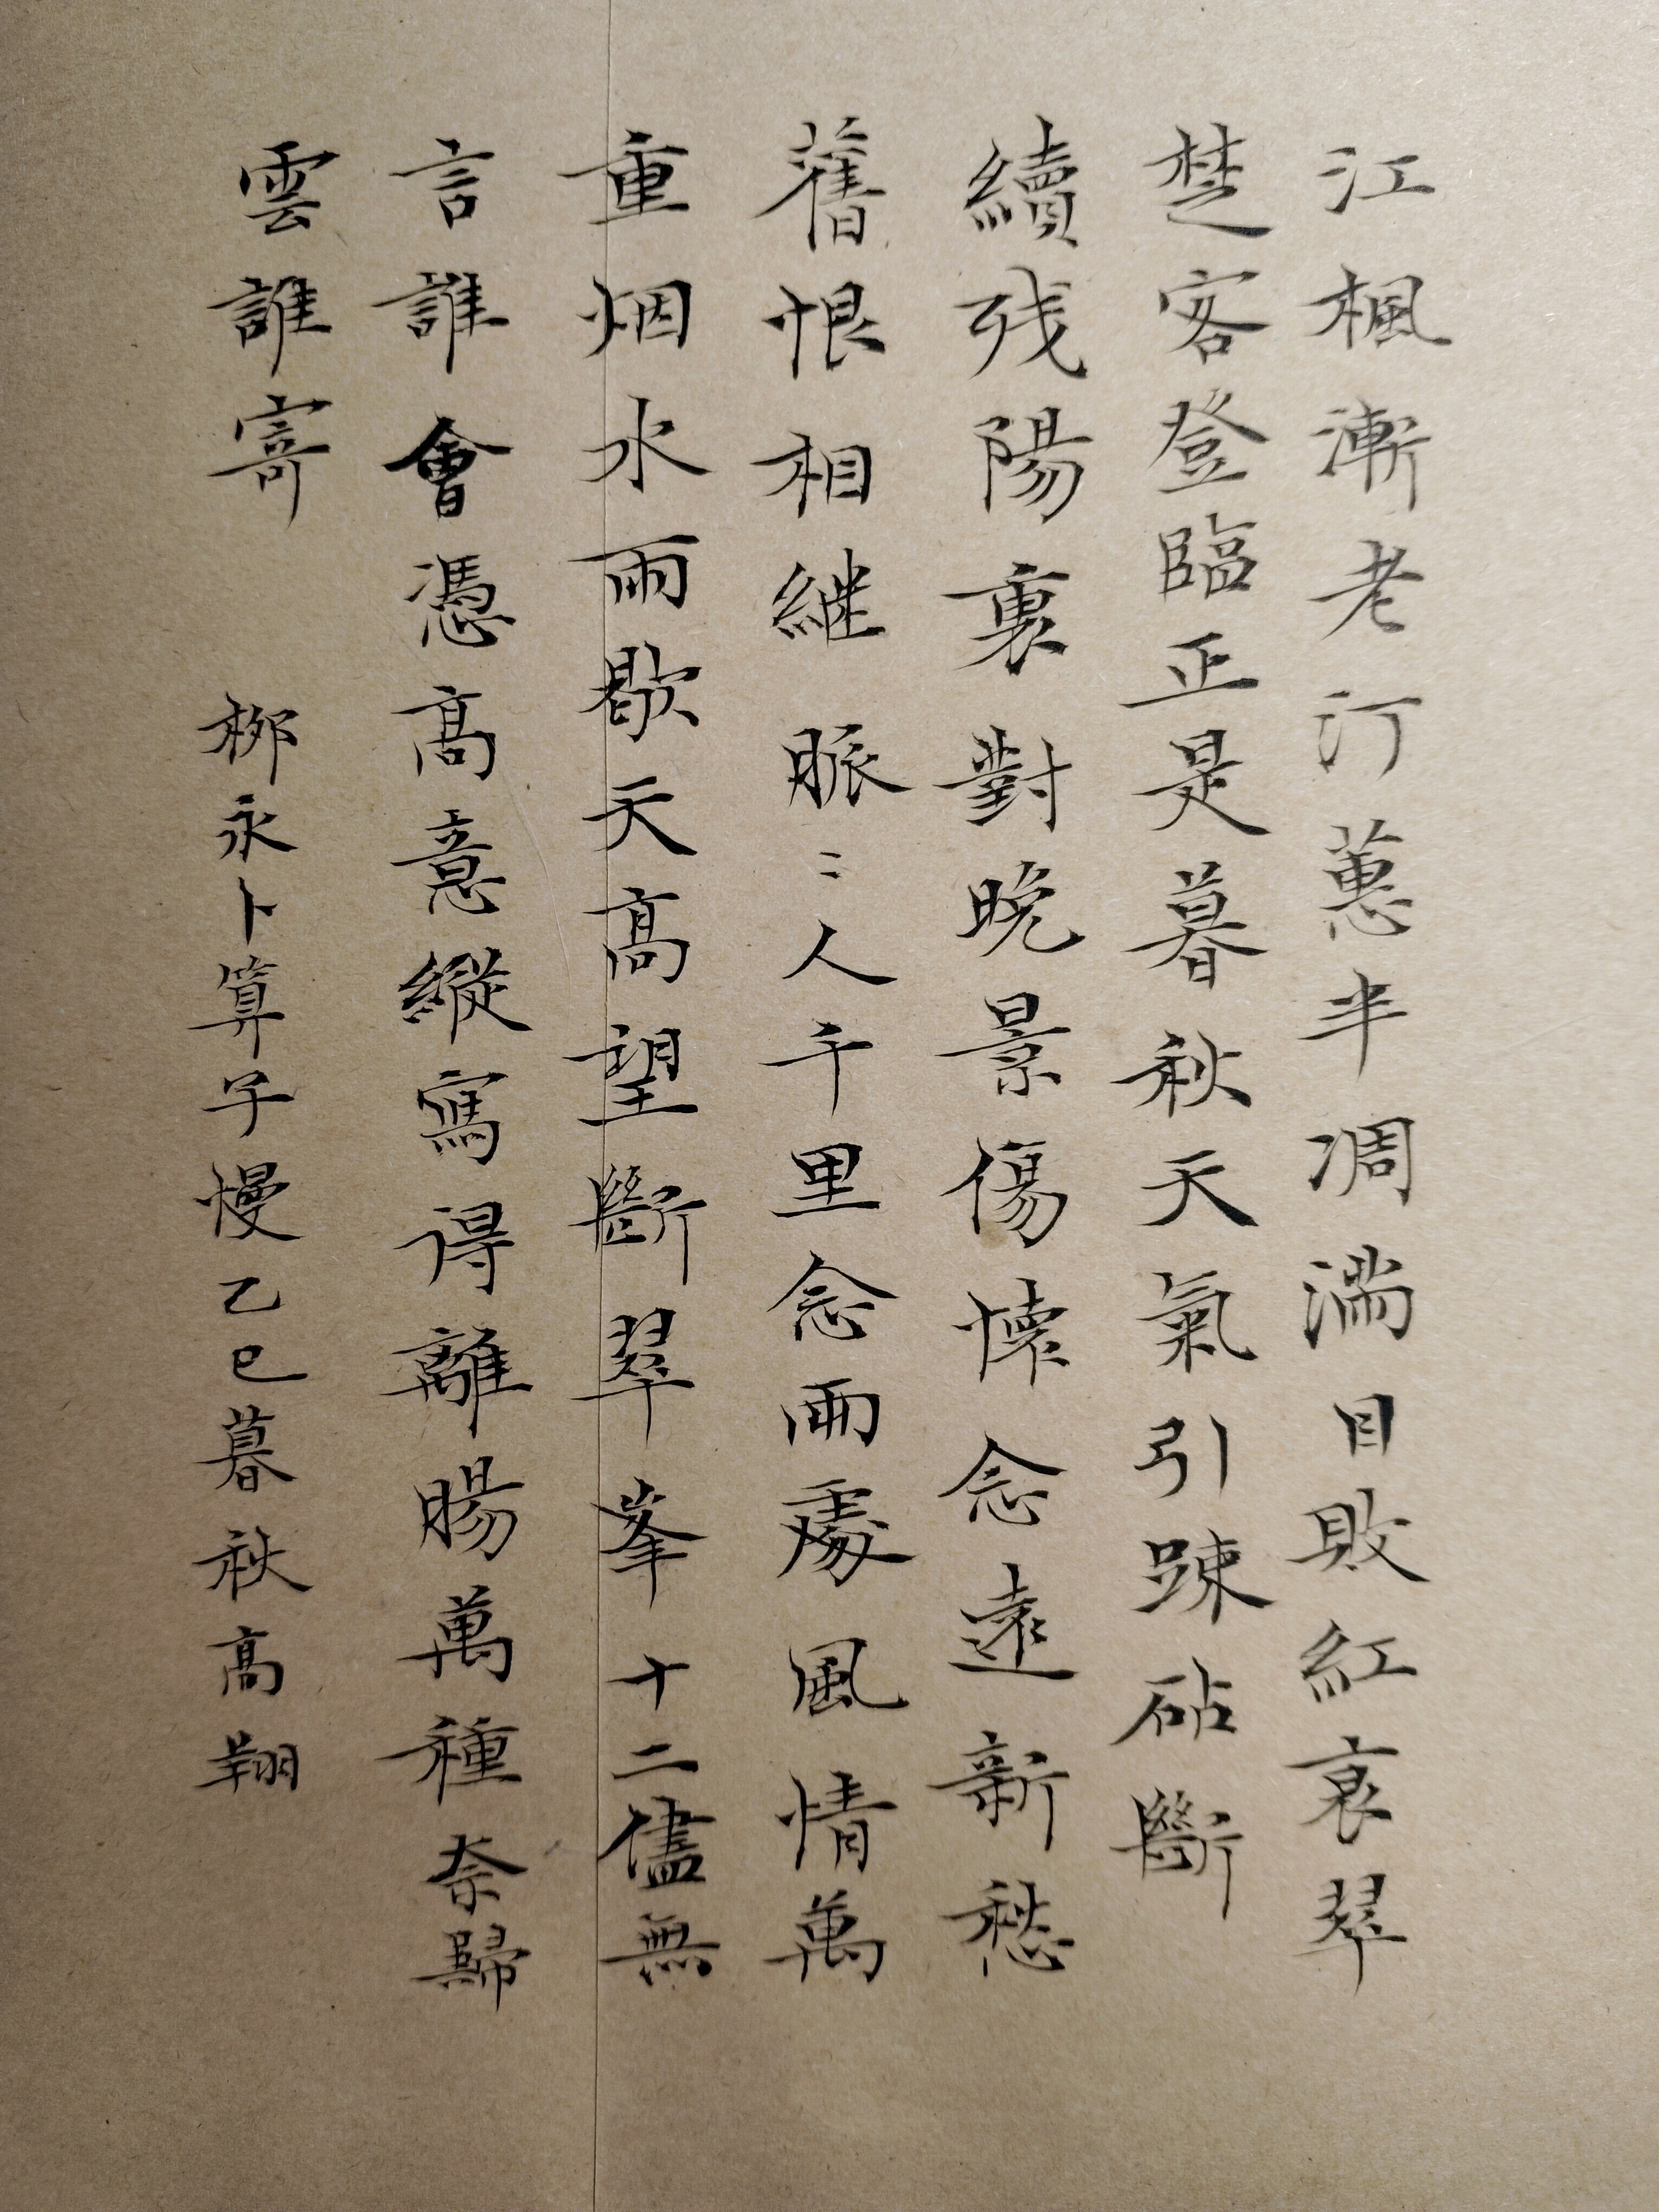 江楓漸老汀蕙半凋滿目敗紅衰翠
楚客登臨正是暮秋天氣引踈砧斷
續残陽裏對晩景傷懐念遠新愁
舊恨相継脈〻人千里念兩處風情萬
重烟水雨歇天高望斷翠峯十二儘無
言誰會憑高意縱寫得離腸萬種奈歸
雲誰寄　柳永卜算子慢乙巳暮秋高翔